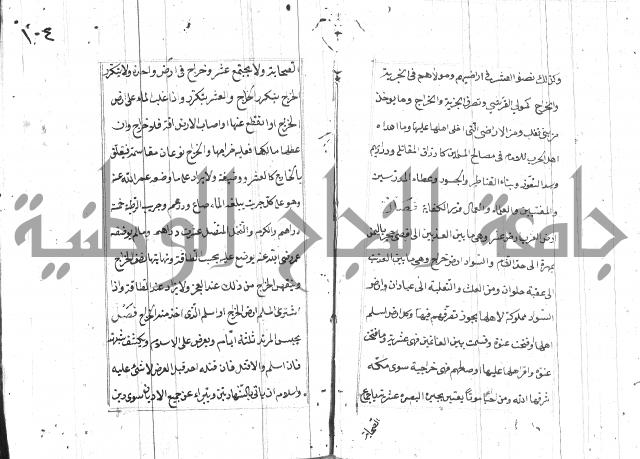 وكذلك نصف العشر في اراضيهم ومولاهم في الجزية
والخراج كمولى القرشي وتصرف الجزية والخراج وما يؤخذ
من بني تغلب ومن الاراضي التي اجلى اهلها عنها وما اهداه
اهل الحرب للامام في مصالح المسلمين كارزاق المقاتلة وذراريهم
وسد الثغور وبناء القناطر والجسور وعطاء المدرسين
والمفتيين والعلماء والعمال قدر الكفاية فصل
ارض العرب ارض عشر وهي ما بين العذيب الى اقصى حجر باليمن
بمهرة الى حد الشام والسواد ارض خراج وهي ما بين العذيب
الى عقبة حلوان ومن العلث والثعلبة الى عبادان وارض
السواد مملوكة لاهلها يجوز تصرفهم فيها وكل ارض اسلم
اهلها او فتحت عنوة وقسمت بين الغانمين فهي عشرية وما فتحت
عنوة واقر اهلها عليها او صلحهم فهي خراجية سوى مكة
شرفها الله ومن احيا مواتا يعتبر بحيزه البصرة عشرية باجماع
الصحابة
١٠٤
الصحابة ولا يجتمع عشر وخراج في ارض واحدة ولا يتكرر
الخراج بتكرر الخارج والعشر يتكرر واذا غلب الماء على ارض
الخراج او انقطع عنها او اصاب الزرع افة فلا خراج وان
عطلها مالكها فعليه خراجها والخراج نوعان مقاسمة فيتعلق
بالخارج كالعشر ووظيفة ولا يزاد على ما وضعه عمر رضى الله عنه
وهو على كل جريب يبلغه الماء صاع ودرهم وجريب الرطبة خمسة
دراهم والكرم والنخل المتصل عشرة دراهم وما لم يوظفه
عمر رضى الله عنه يوضع عليه بحسب الطاقة ونهايتها نصف الخارج
وينقص الخراج من ذلك عند العجز ولا يزاد عند الطاقة واذا
اشترى مسلم ارض الخراج او اسلم الذمي اخذ منه الخراج فصل
يحبس المرتد ثلثة ايام ويعرض عليه الاسلام وتكشف شبهته
فان اسلم والا قتل فان قتله احد قبل العرض لا شئ عليه
واسلامه ان ياتي بالشهادتين ويتبراء عن جميع الاديان سوى دين
جامعة النجاح الوطنية